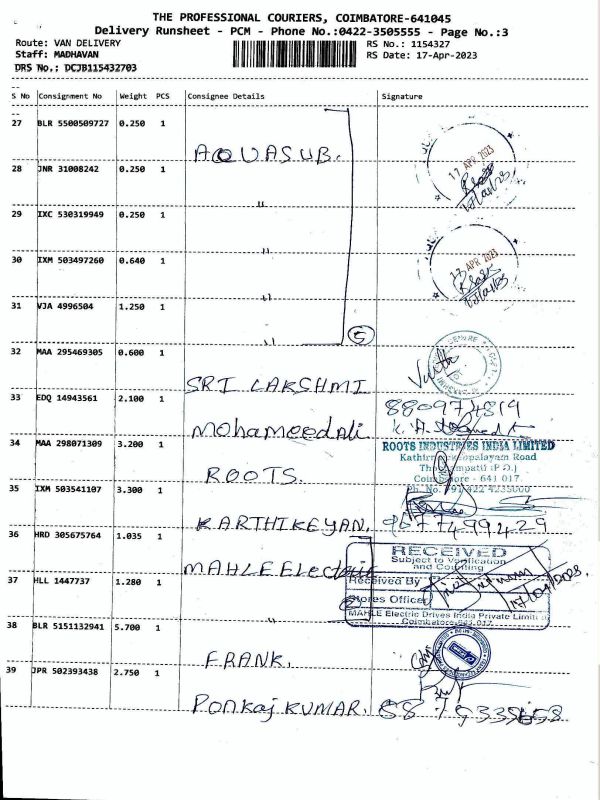 THE PROFESSIONAL COURIERS, COIMBATORE-641045
Delivery Runsheet - PCM - Phone No.:0422-3505555 - Page No.:3
Route: VAN DELIVERY
RS No.: 1154327
Staff: MADHAVAN
RS Date: 17-Apr-2023
DRS No.: DCJB115432703
S No Consignment No Weight PCS Consignee Details Signature
27 BLR 5500509727 0.250 1
AQUASUB.
17 APR 2023
28 JNR 31008242 0.250 1
"
29 IXC 530319949 0.250 1
"
30 IXM 503497260 0.640 1
APR 2023
"
31 VJA 4996504 1.250 1
" 5
32 MAA 295469305 0.600 1
SRI LAKSHMI
33 EDQ 14943561 2.100 1
8809734819
Mohameed Ali
34 MAA 298071309 3.200 1
ROOTS INDUSTRIES INDIA LIMITED
ROOTS.
Coimbatore - 641 017
35 IXM 503541107 3.300 1
KARTHIKEYAN. 9677499429
36 HRD 305675764 1.035 1
RECEIVED
Subject to Verification
and Counting
MAHLE Electric
Received By
37 HLL 1447737 1.280 1
Stores Officer
17/04/2023
"
MAHLE Electric Drives India Private Limited
Coimbatore-641 017
38 BLR 5151132941 5.700 1
FRANK.
39 JPR 502393438 2.750 1
Ponkaj KUMAR.